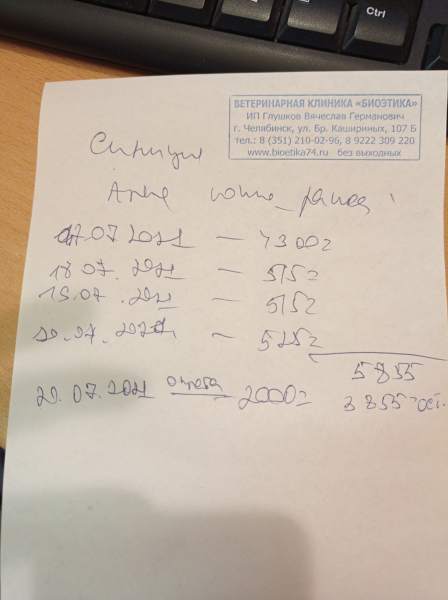 Ctrl
ВЕТЕРИНАРНАЯ КЛИНИКА «БИОЭТИКА»
ИП Глушков Вячеслав Германович
г. Челябинск, ул. Бр. Кашириных, 107 Б
тел.: 8 (351) 210-02-96, 8 9222 309 220
www.bioetika74.ru без выходных
17.07.2021 — 4300=
18.07.2021 — 515=
19.07.2021 — 515=
20.07.2021 — 525=
5855
20.07.2021 оплата 2000=
3855=ост.